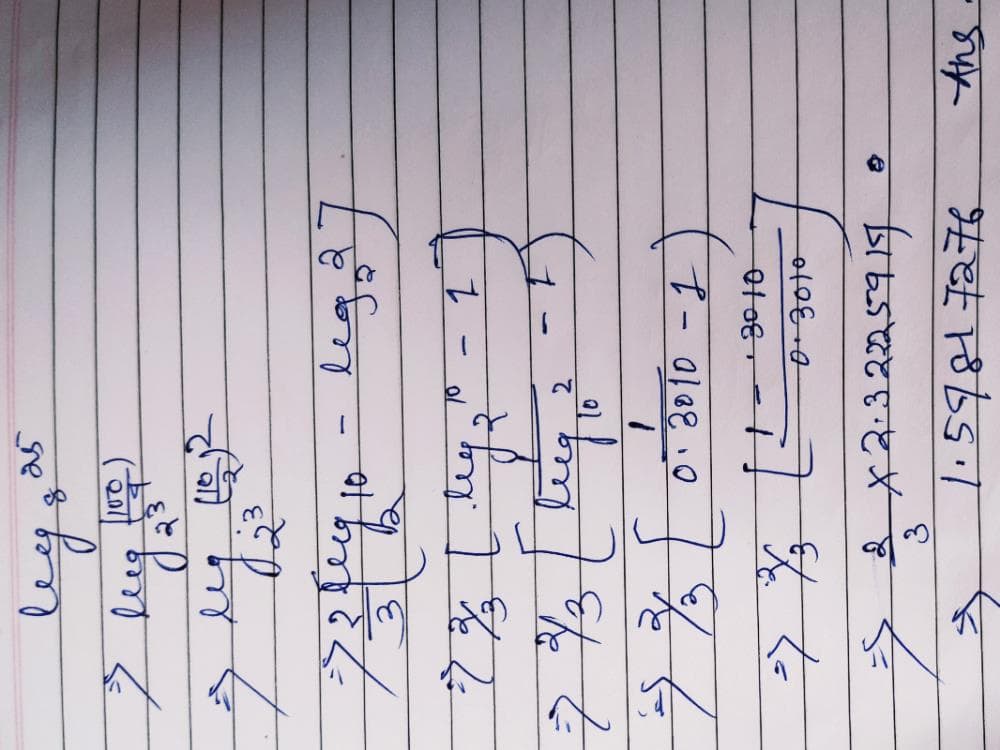 log₈ 25
⇒ log₂³ (100/4)
⇒ log₂³ (10/2)²
⇒ 2/3 [log₂ 10 - log₂ 2]
⇒ 2/3 [log₂ 10 - 1]
⇒ 2/3 [1/log₁₀ 2 - 1]
⇒ 2/3 [1/0.3010 - 1]
⇒ 2/3 [1 - .3010/0.3010]
⇒ 2/3 × 2.32225919
⇒ 1.59817276 Ans.